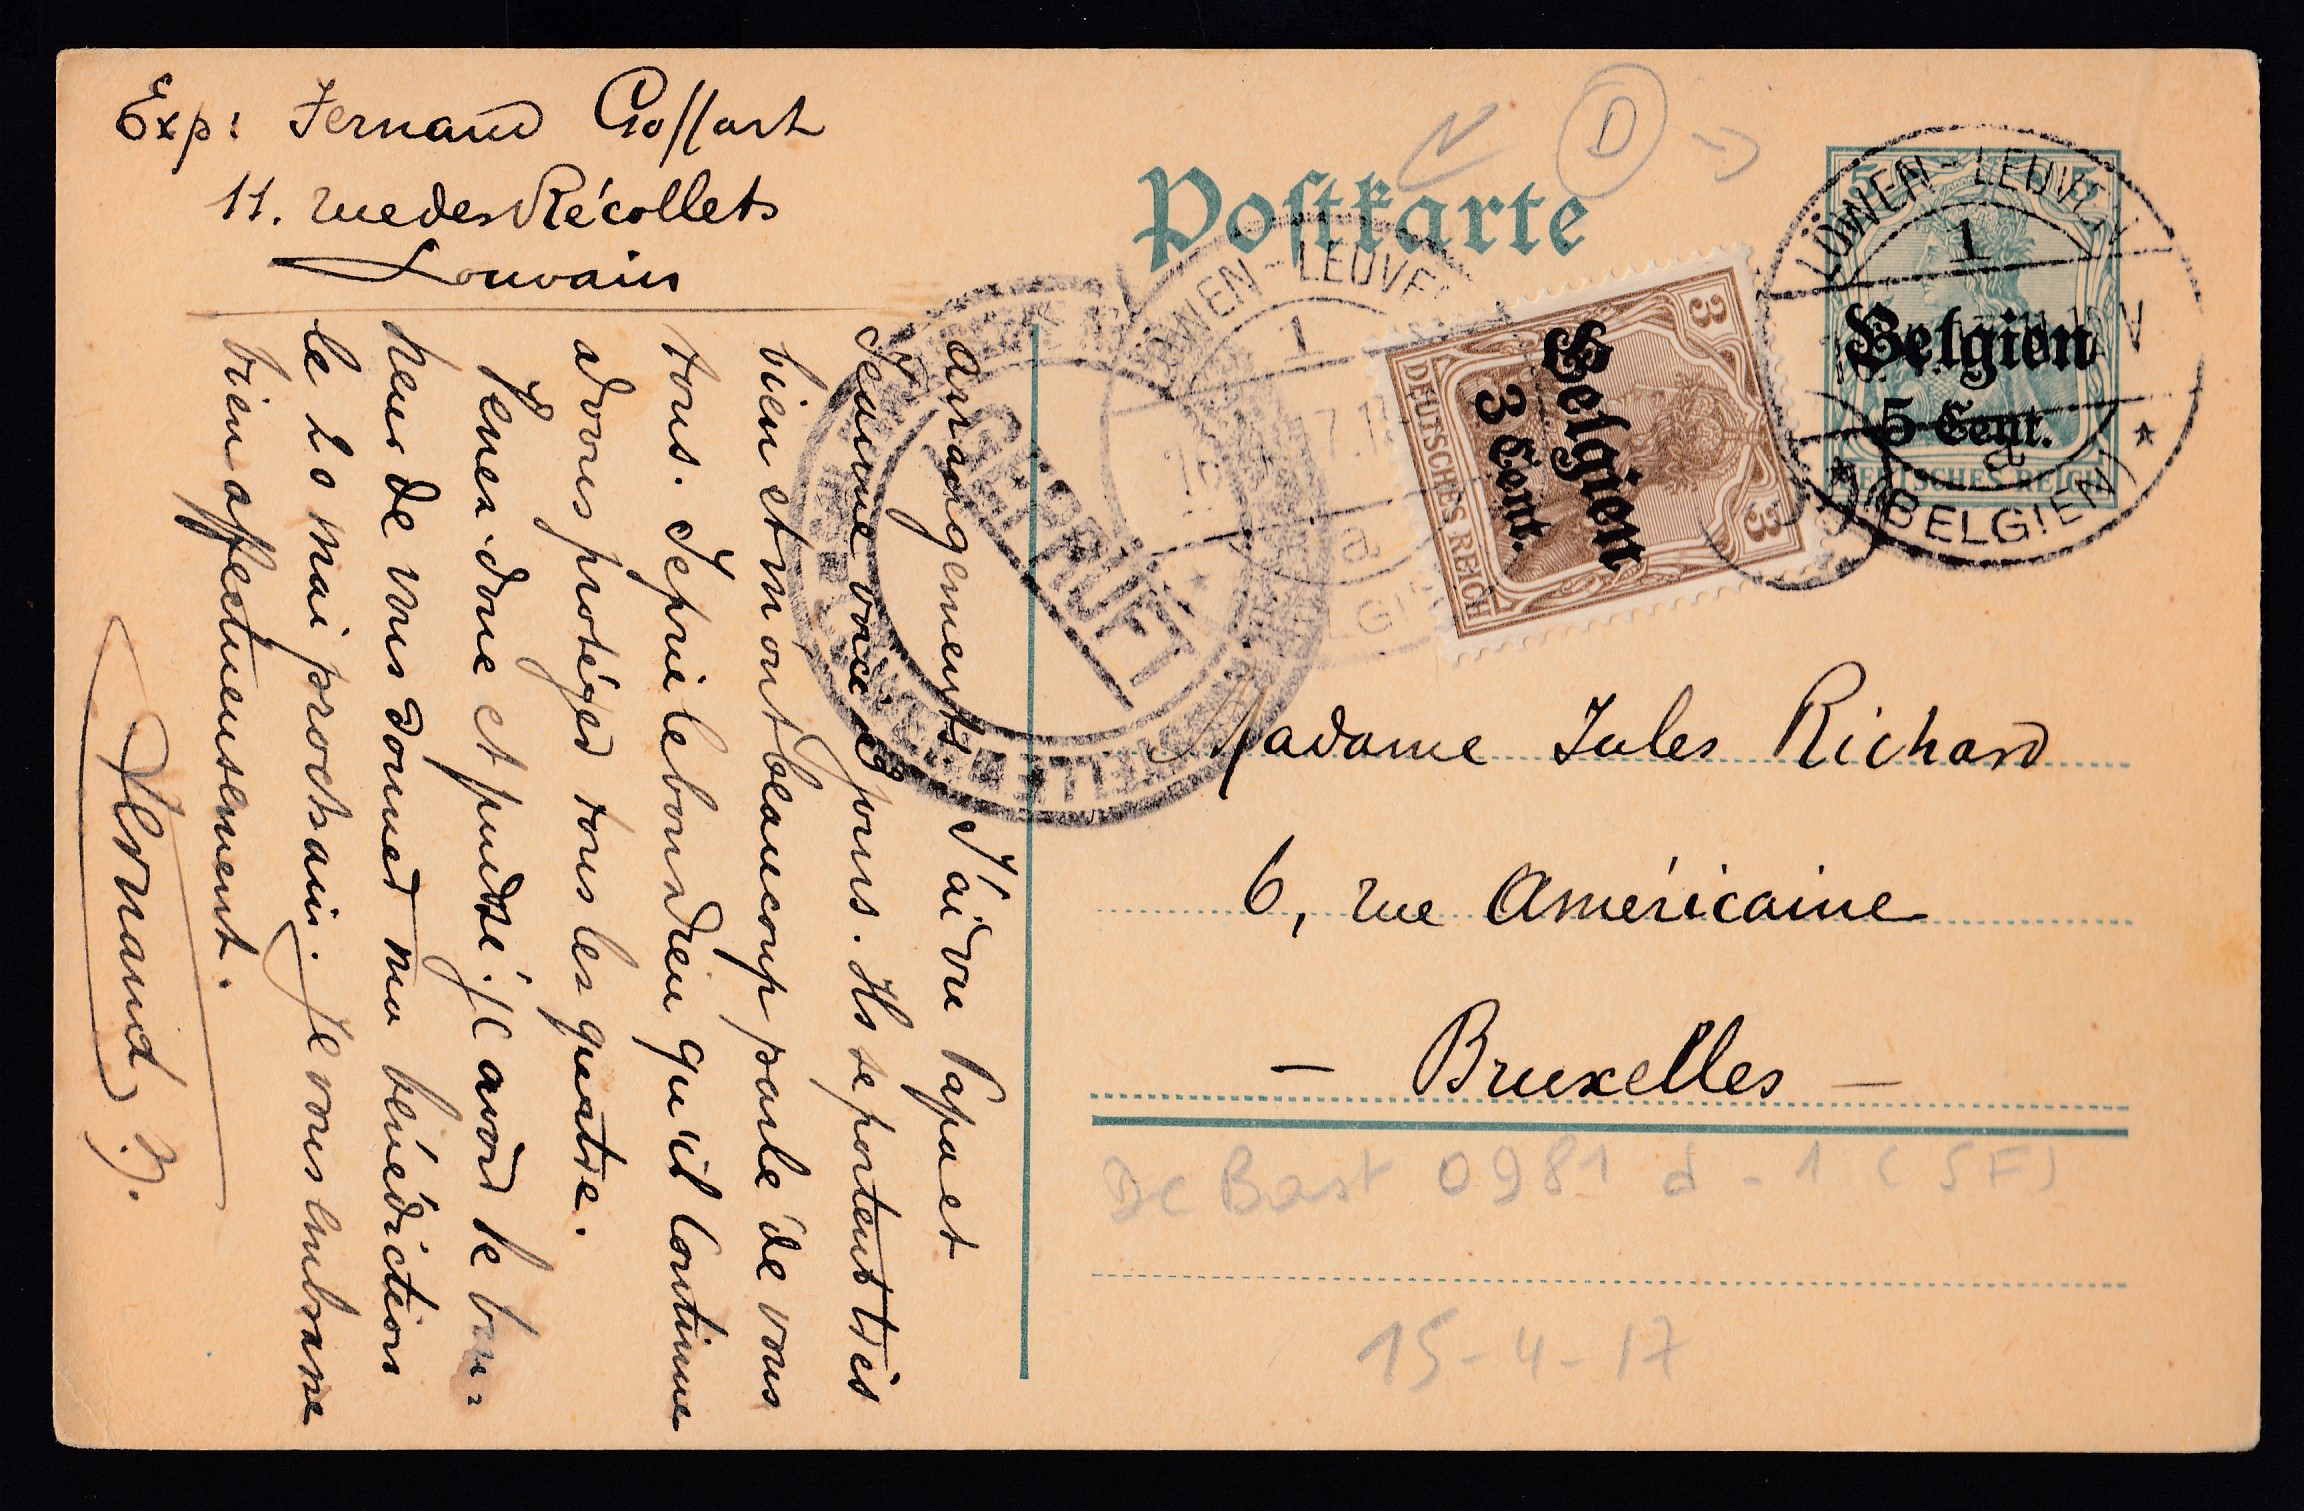 Exp: Fernand Goffart
11. rue des Récollets
Louvain
Postkarte
N
D
LÖWEN-LEUVEN
1
a
* (BELGIEN) *
5 5
Belgien
5 Cent.
DEUTSCHES REICH
LÖWEN-LEUVEN
1
a
3 3
Belgien
3 Cent.
DEUTSCHES REICH
GEPRÜFT
Madame Jules Richard
6, rue Américaine
- Bruxelles -
De Bast 0981 d - 1 (SF)
15-4-17
arrangements. J'ai vu Papa et
Jeanne voici 8 jours. Ils se portent très
bien et m'ont beaucoup parlé de vous
tous. Je prie le bon Dieu qu'il continue
à vous protéger tous les quatre.
Venez donc et pudsé. J'(aurai le bon-
heur de vous donner ma bénédiction
le 20 mai prochain. Je vous embrasse
bien affectueusement.
Fernand